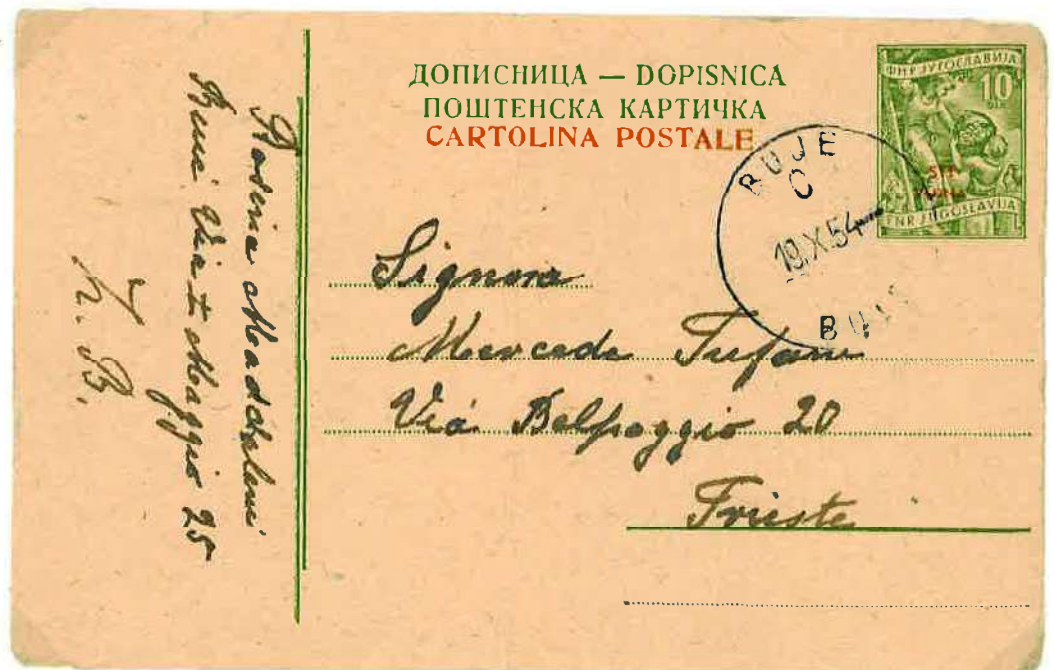 ДОПИСНИЦА — DOPISNICA
ПОШТЕНСКА КАРТИЧКА
CARTOLINA POSTALE
ФНР ЈУГОСЛАВИЈА
10
DIN
STT
VUJNA
FNR JUGOSLAVIJA
BUJE
C
19.X.54
BUIE
Signora
Mercede Tufani
Via Belpoggio 20
Trieste
Rosina Maddaleni
Buie Via I Maggio 25
Z. B.